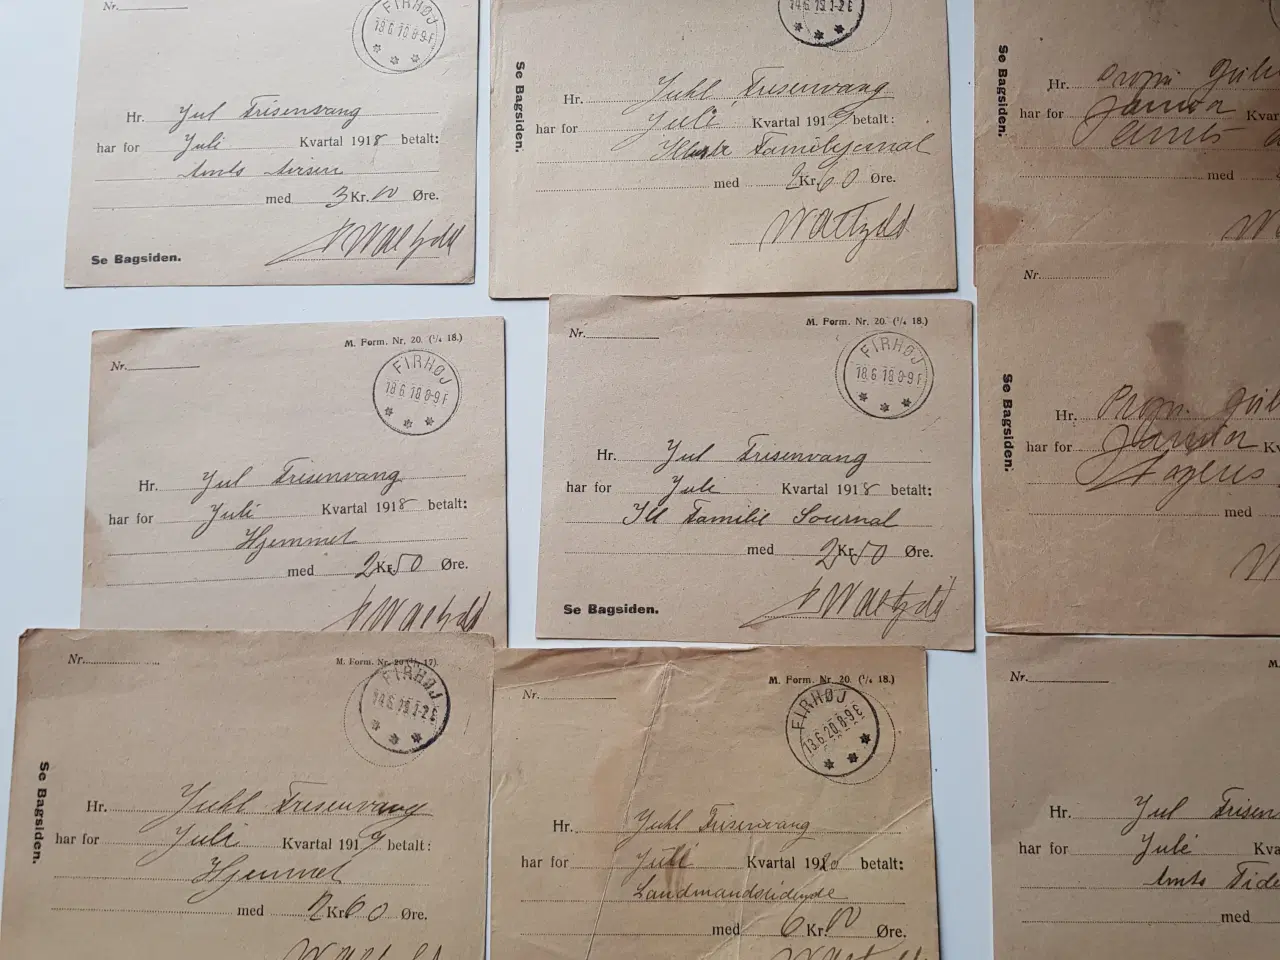 Nr.
FIRHØJ
18.6.18.8-9F
Hr. Jul Frisenvang
har for Juli Kvartal 1918 betalt:
Amts Avisen
med 3 Kr. 00 Øre.
Se Bagsiden.
FIRHØJ
14.6.19.1-2E
Se Bagsiden.
Hr. Juhl Frisenvang
har for Juli Kvartal 1919 betalt:
Familiejornal
med 2 Kr. 60 Øre.
Se Bagsiden.
Hr.
har for Januar Kvar
Amts
med
Nr.
M. Form. Nr. 20. (¹/₄ 18.)
FIRHØJ
18.6.18.8-9F
Hr. Jul Frisenvang
har for Juli Kvartal 1918 betalt:
Hjemmet
med 2 Kr. 50 Øre.
Nr.
M. Form. Nr. 20. (¹/₄ 18.)
FIRHØJ
18.6.18.8-9F
Hr. Jul Frisenvang
har for Juli Kvartal 1918 betalt:
Ill Familie Journal
med 2 Kr. 50 Øre.
Se Bagsiden.
Nr.
Se Bagsiden.
Hr.
har for Januar Kv
med
Nr.
M. Form. Nr. 20 17).
FIRHØJ
14.6.19.1-2E
Se Bagsiden.
Hr. Juhl Frisenvang
har for Juli Kvartal 1919 betalt:
Hjemmet
med 2 Kr. 60 Øre.
Nr.
M. Form. Nr. 20. (¹/₄ 18.)
FIRHØJ
13.6.20.8-9E
Hr. Juhl Frisenvang
har for Juli Kvartal 1920 betalt:
Landmandstidende
med 6 Kr. 00 Øre.
Nr.
M.
Hr. Jul Frisen
har for Juli Kva
Amts Tide
med